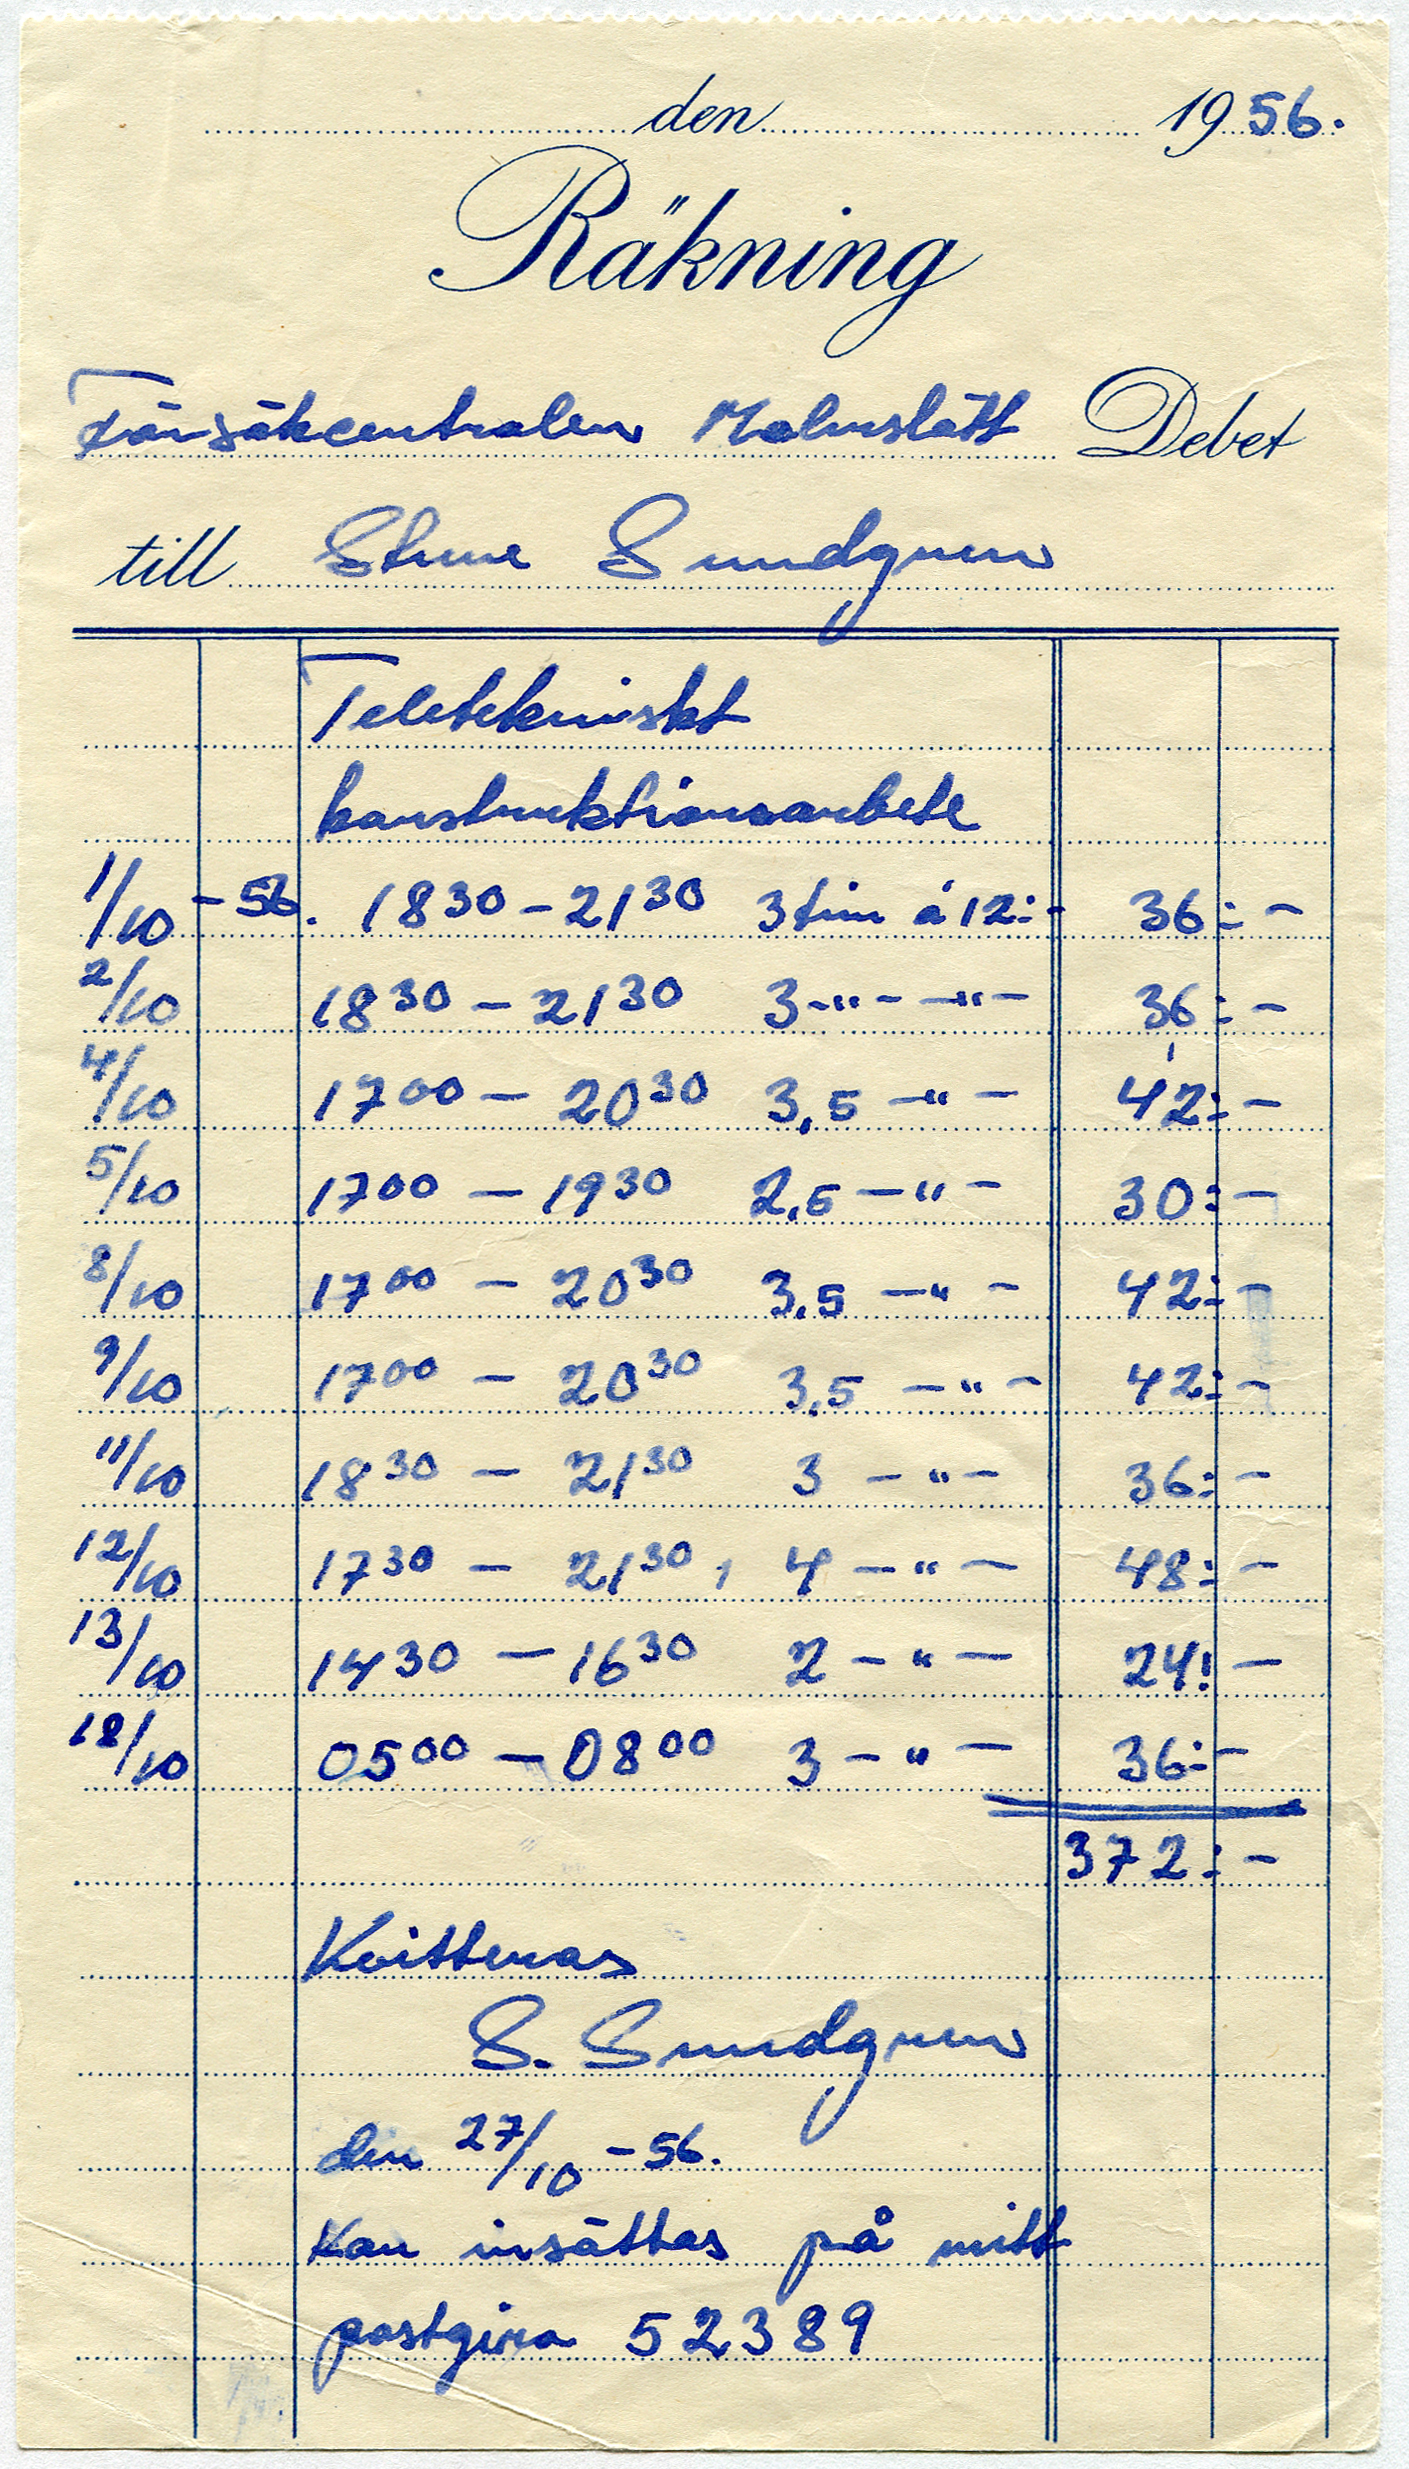 den 1956.
Räkning
Försökcentralen Malmslätt Debet
till Sture Sundgren
Teletekniskt
konstruktionsarbete
1/10 -56. 18 30 - 21 30 3 tim á 12:- 36:-
2/10 18 30 - 21 30 3 -"- -"- 36:-
4/10 17 00 - 20 30 3,5 -"- 42:-
5/10 17 00 - 19 30 2,5 -"- 30:-
8/10 17 00 - 20 30 3,5 -"- 42:-
9/10 17 00 - 20 30 3,5 -"- 42:-
11/10 18 30 - 21 30 3 -"- 36:-
12/10 17 30 - 21 30, 4 -"- 48:-
13/10 14 30 - 16 30 2 -"- 24:-
18/10 05 00 - 08 00 3 -"- 36:-
372:-
Kvitteras
S. Sundgren
den 27/10 -56.
Kan insättas på mitt
postgiro 52389